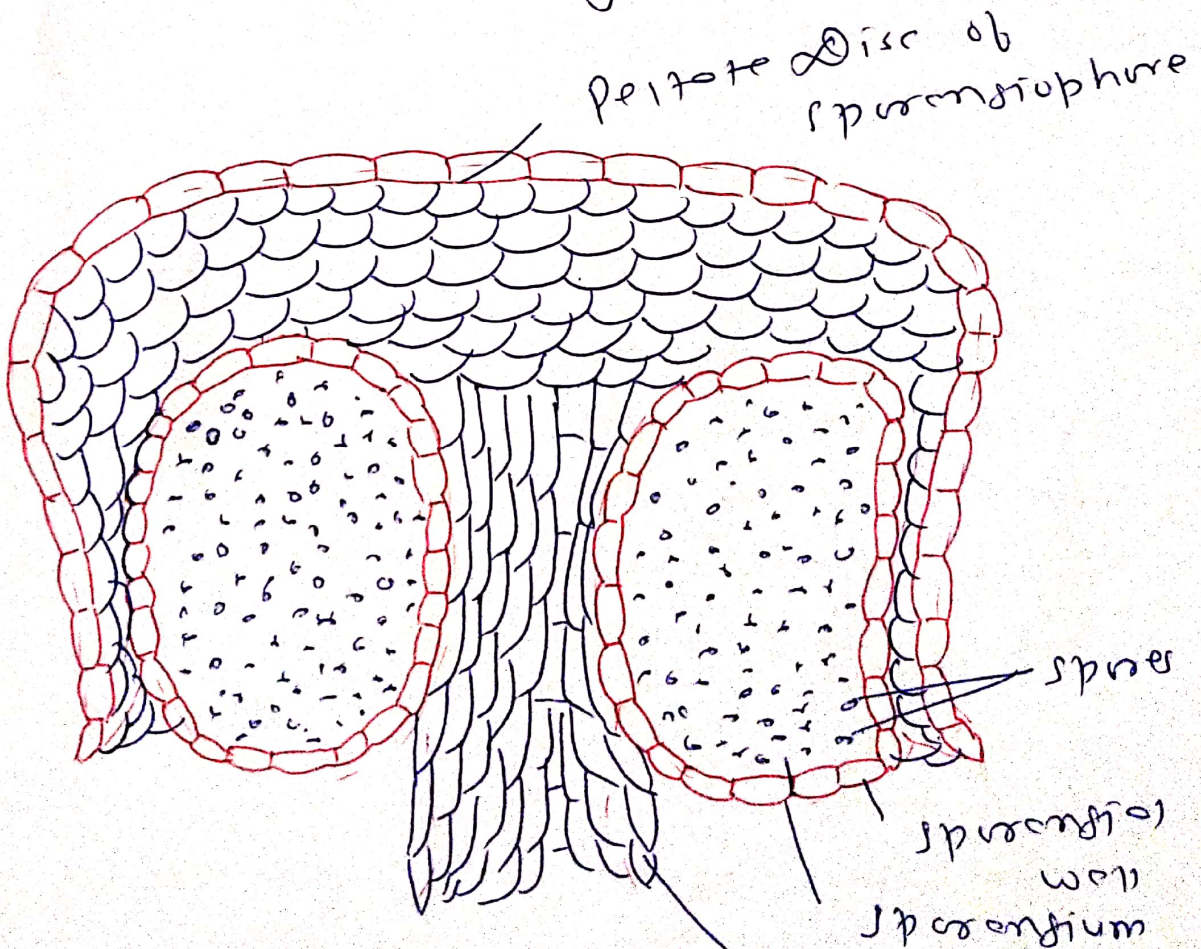 Peltate Disc of
sporangiophore
spores
sporangial
wall
sporangium